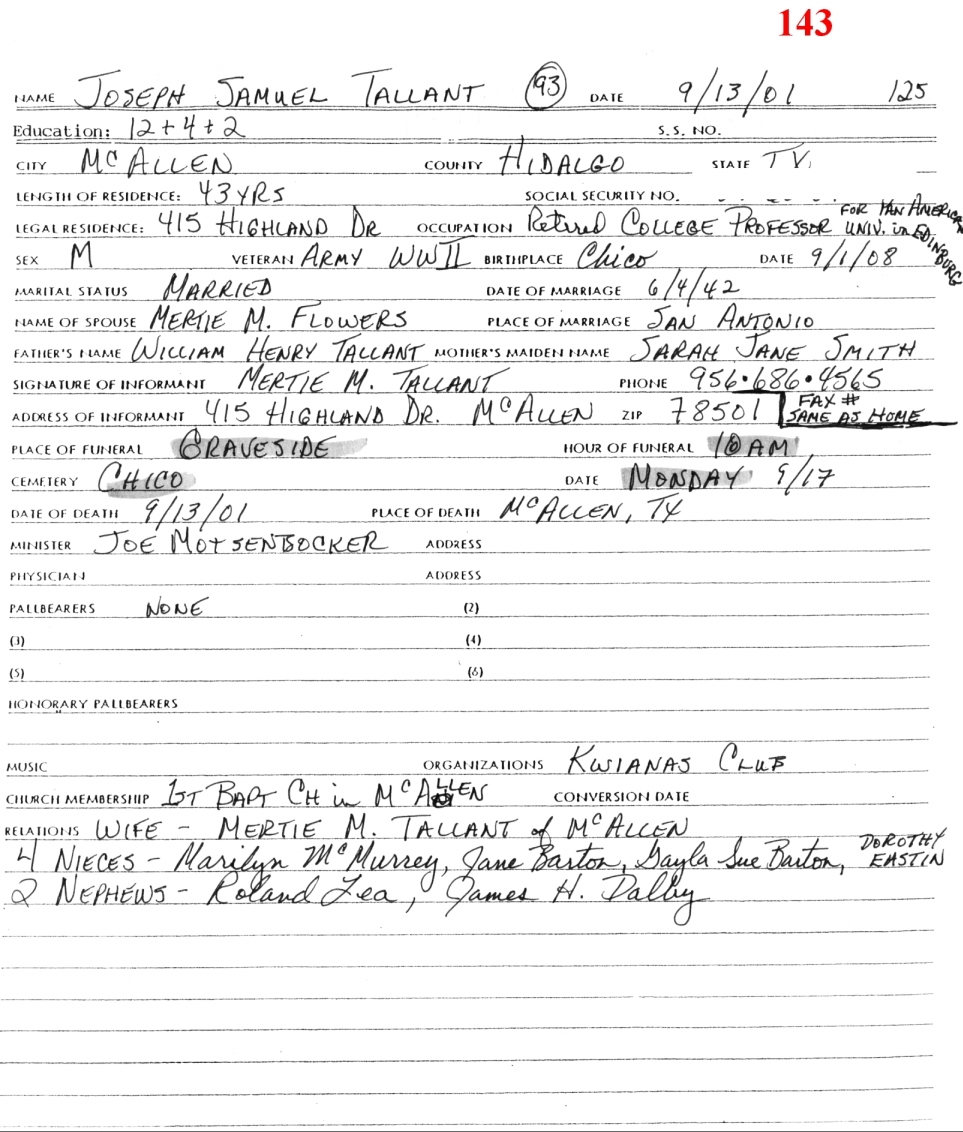 143
NAME JOSEPH SAMUEL TALLANT 93 DATE 9/13/01 125
Education: 12+4+2 S.S. NO.
CITY MCALLEN COUNTY HIDALGO STATE TX
LENGTH OF RESIDENCE: 43 YRS SOCIAL SECURITY NO.
LEGAL RESIDENCE: 415 HIGHLAND DR OCCUPATION Retired COLLEGE PROFESSOR FOR PAN AMERICAN UNIV. in EDINBURG
SEX M VETERAN ARMY WWII BIRTHPLACE Chico DATE 9/1/08
MARITAL STATUS MARRIED DATE OF MARRIAGE 6/4/42
NAME OF SPOUSE MERTIE M. FLOWERS PLACE OF MARRIAGE SAN ANTONIO
FATHER'S NAME WILLIAM HENRY TALLANT MOTHER'S MAIDEN NAME SARAH JANE SMITH
SIGNATURE OF INFORMANT MERTIE M. TALLANT PHONE 956·686·4565
ADDRESS OF INFORMANT 415 HIGHLAND DR. MCALLEN ZIP 78501 FAX # SAME AS HOME
PLACE OF FUNERAL GRAVESIDE HOUR OF FUNERAL 10 AM
CEMETERY CHICO DATE MONDAY 9/17
DATE OF DEATH 9/13/01 PLACE OF DEATH MCALLEN, TX
MINISTER JOE MOTSENBOCKER ADDRESS
PHYSICIAN ADDRESS
PALLBEARERS NONE (2)
(3) (4)
(5) (6)
HONORARY PALLBEARERS
MUSIC ORGANIZATIONS KWIANAS CLUB
CHURCH MEMBERSHIP 1ST BAPT CH in MCALLEN CONVERSION DATE
RELATIONS WIFE - MERTIE M. TALLANT of MCALLEN
4 NIECES - Marilyn McMurrey, Jane Barton, Gayla Sue Barton, DOROTHY EASTIN
2 NEPHEWS - Roland Lea, James H. Dalby